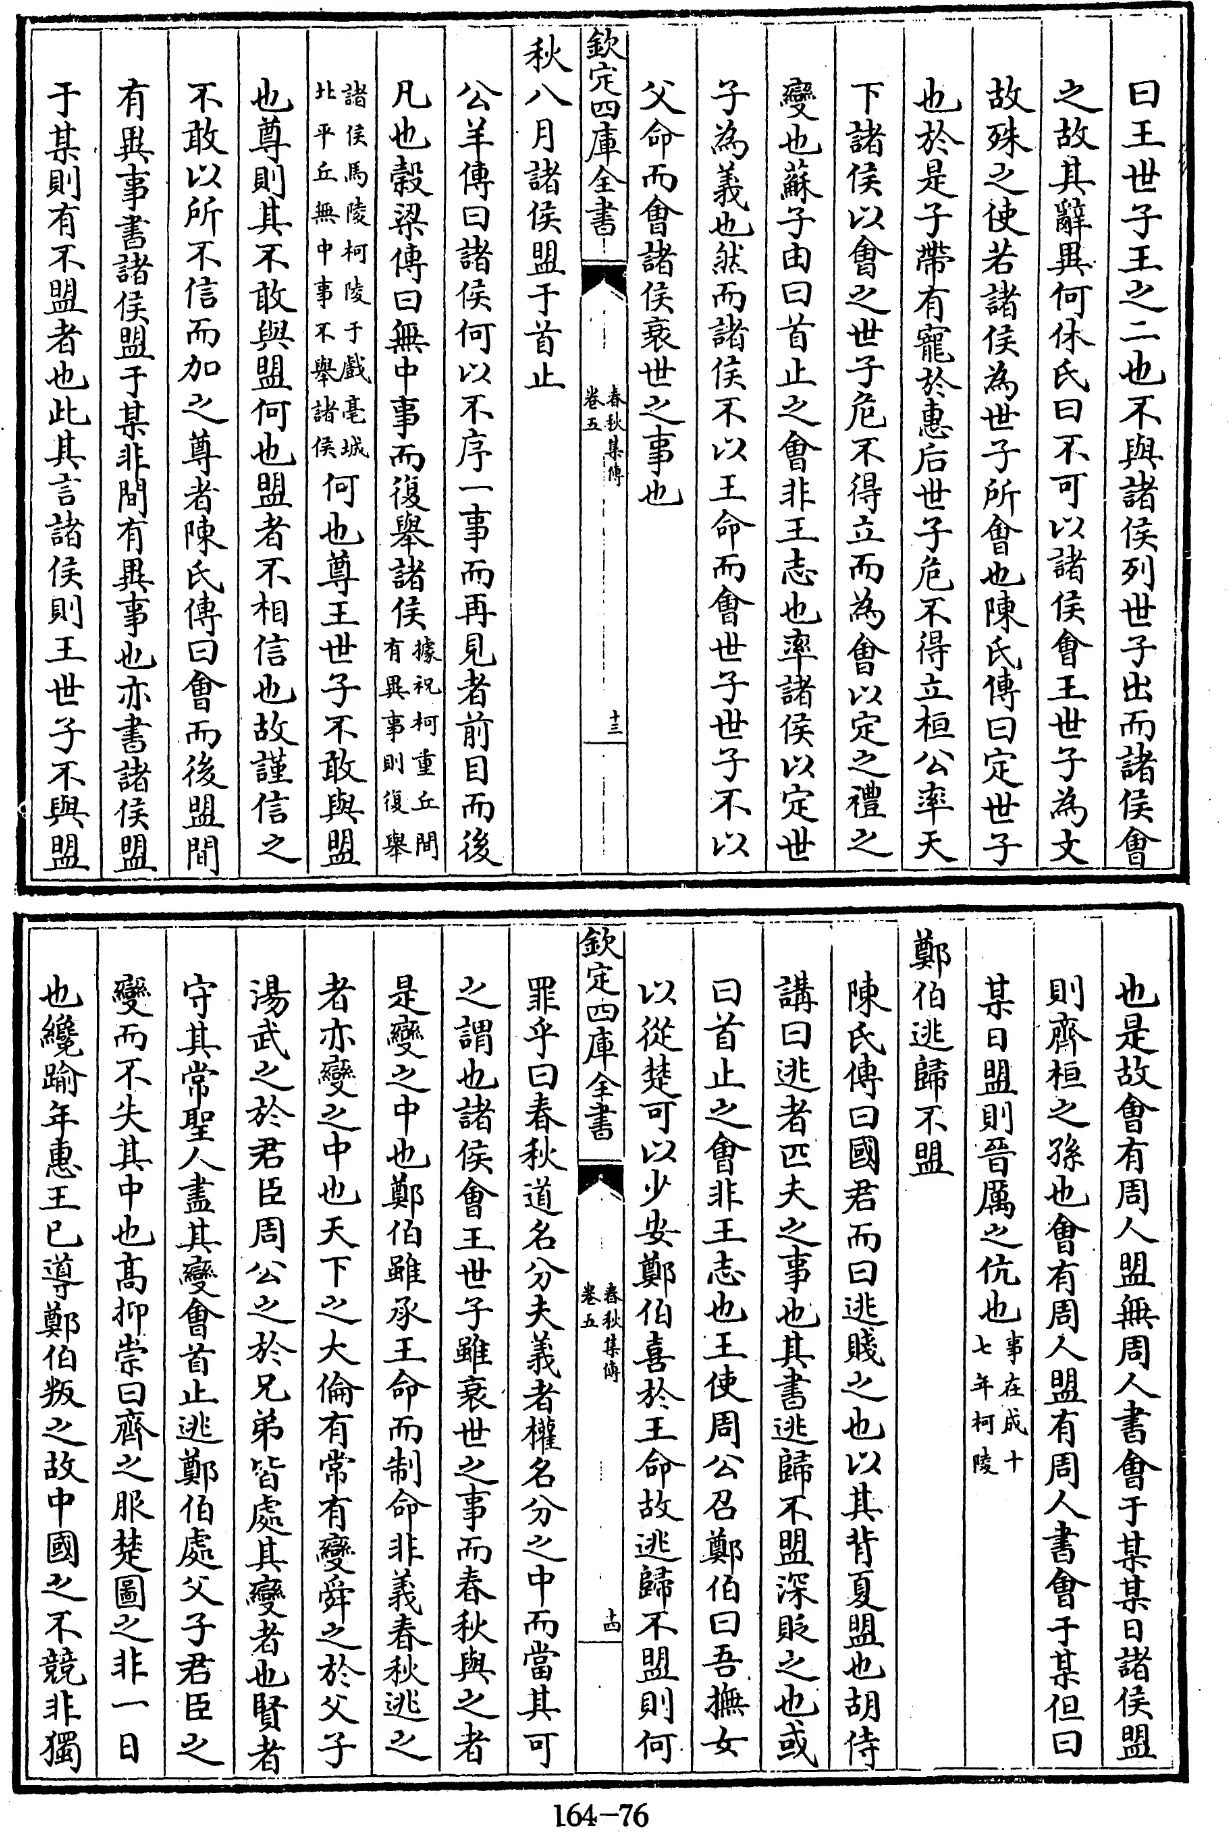 曰王世子王之二也不與諸侯列世子出而諸侯會
之故其辭異何休氏曰不可以諸侯會王世子為文
故殊之使若諸侯為世子所會也陳氏傳曰定世子
也於是子帶有寵於惠后世子危不得立桓公率天
下諸侯以會之世子危不得立而為會以定之禮之
變也蘇子由曰首止之會非王志也率諸侯以定世
子為義也然而諸侯不以王命而會世子世子不以
父命而會諸侯衰世之事也
欽定四庫全書
春秋集傳
卷五
十三
秋八月諸侯盟于首止
公羊傳曰諸侯何以不序一事而再見者前目而後
凡也穀梁傳曰無中事而復舉諸侯據祝柯重丘間有異事則復舉
諸侯馬陵柯陵于戲亳城北平丘無中事不舉諸侯何也尊王世子不敢與盟
也尊則其不敢與盟何也盟者不相信也故謹信之
不敢以所不信而加之尊者陳氏傳曰會而後盟間
有異事書諸侯盟于某非間有異事也亦書諸侯盟
于某則有不盟者也此其言諸侯則王世子不與盟
也是故會有周人盟無周人書會于某某日諸侯盟
則齊桓之孫也會有周人盟有周人書會于某但曰
某日盟則晉厲之伉也事在成十七年柯陵
鄭伯逃歸不盟
陳氏傳曰國君而曰逃賤之也以其背夏盟也胡侍
講曰逃者匹夫之事也其書逃歸不盟深貶之也或
曰首止之會非王志也王使周公召鄭伯曰吾撫女
以從楚可以少安鄭伯喜於王命故逃歸不盟則何
欽定四庫全書
春秋集傳
卷五
十四
罪乎曰春秋道名分夫義者權名分之中而當其可
之謂也諸侯會王世子雖衰世之事而春秋與之者
是變之中也鄭伯雖承王命而制命非義春秋逃之
者亦變之中也天下之大倫有常有變舜之於父子
湯武之於君臣周公之於兄弟皆處其變者也賢者
守其常聖人盡其變會首止逃鄭伯處父子君臣之
變而不失其中也髙抑崇曰齊之服楚圖之非一日
也纔踰年惠王已導鄭伯叛之故中國之不競非獨
164-76